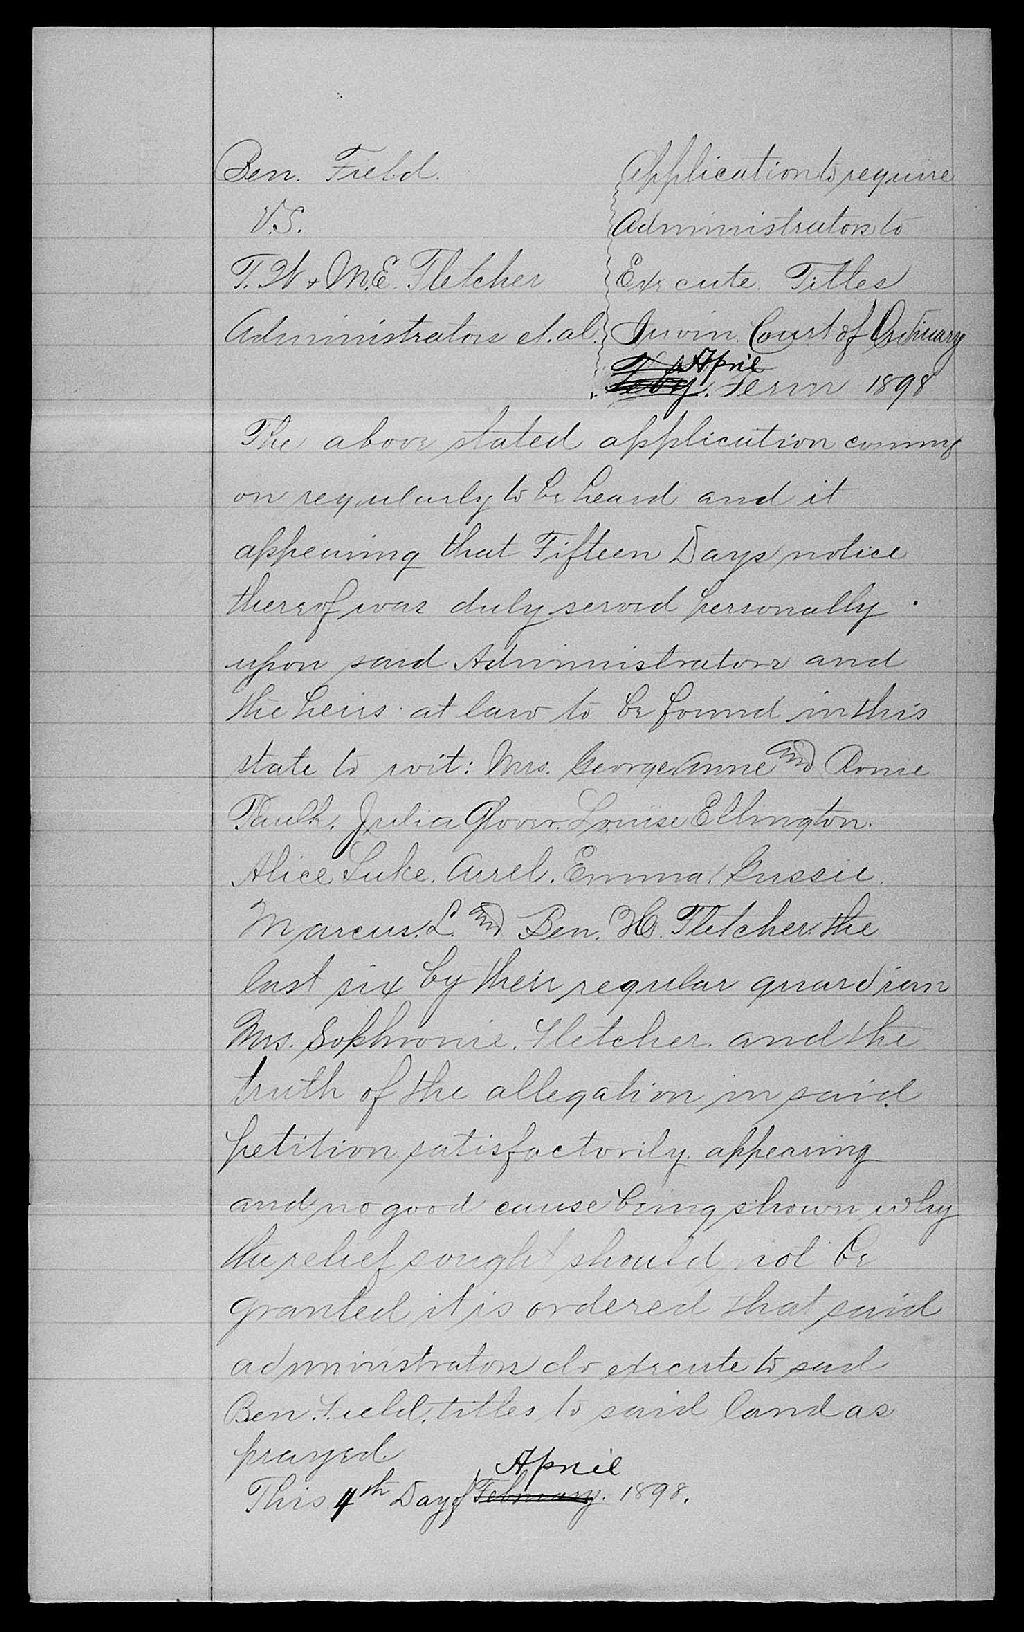 Ben. Field.
V.S.
T. W & M.E. Fletcher
Administrators et. al.
Application to require
Administrators to
Execute Titles
Irwin Court of Ordinary
Feby. April Term 1898
The above stated application coming
on regularly to be heard and it
appearing that Fifteen Days notice
thereof was duly served personally
upon said Administrators and
the heirs at law to be found in this
state to wit: Mrs. George Anne and Rome
Paulk, Julia Glover. Louise Ellington.
Alice Luke. Aurel. Emma Gussie.
Marcus. L and Ben. H. Fletcher. the
last six by their regular guardian
Mrs. Sophronie. Fletcher. and the
truth of the allegation in said
petition satisfactorily appearing
and no good cause being shown why
the relief sought should not be
granted it is ordered that said
administrators do execute to said
Ben Field, titles to said land as
prayed
This 4th Day of February. April 1898.